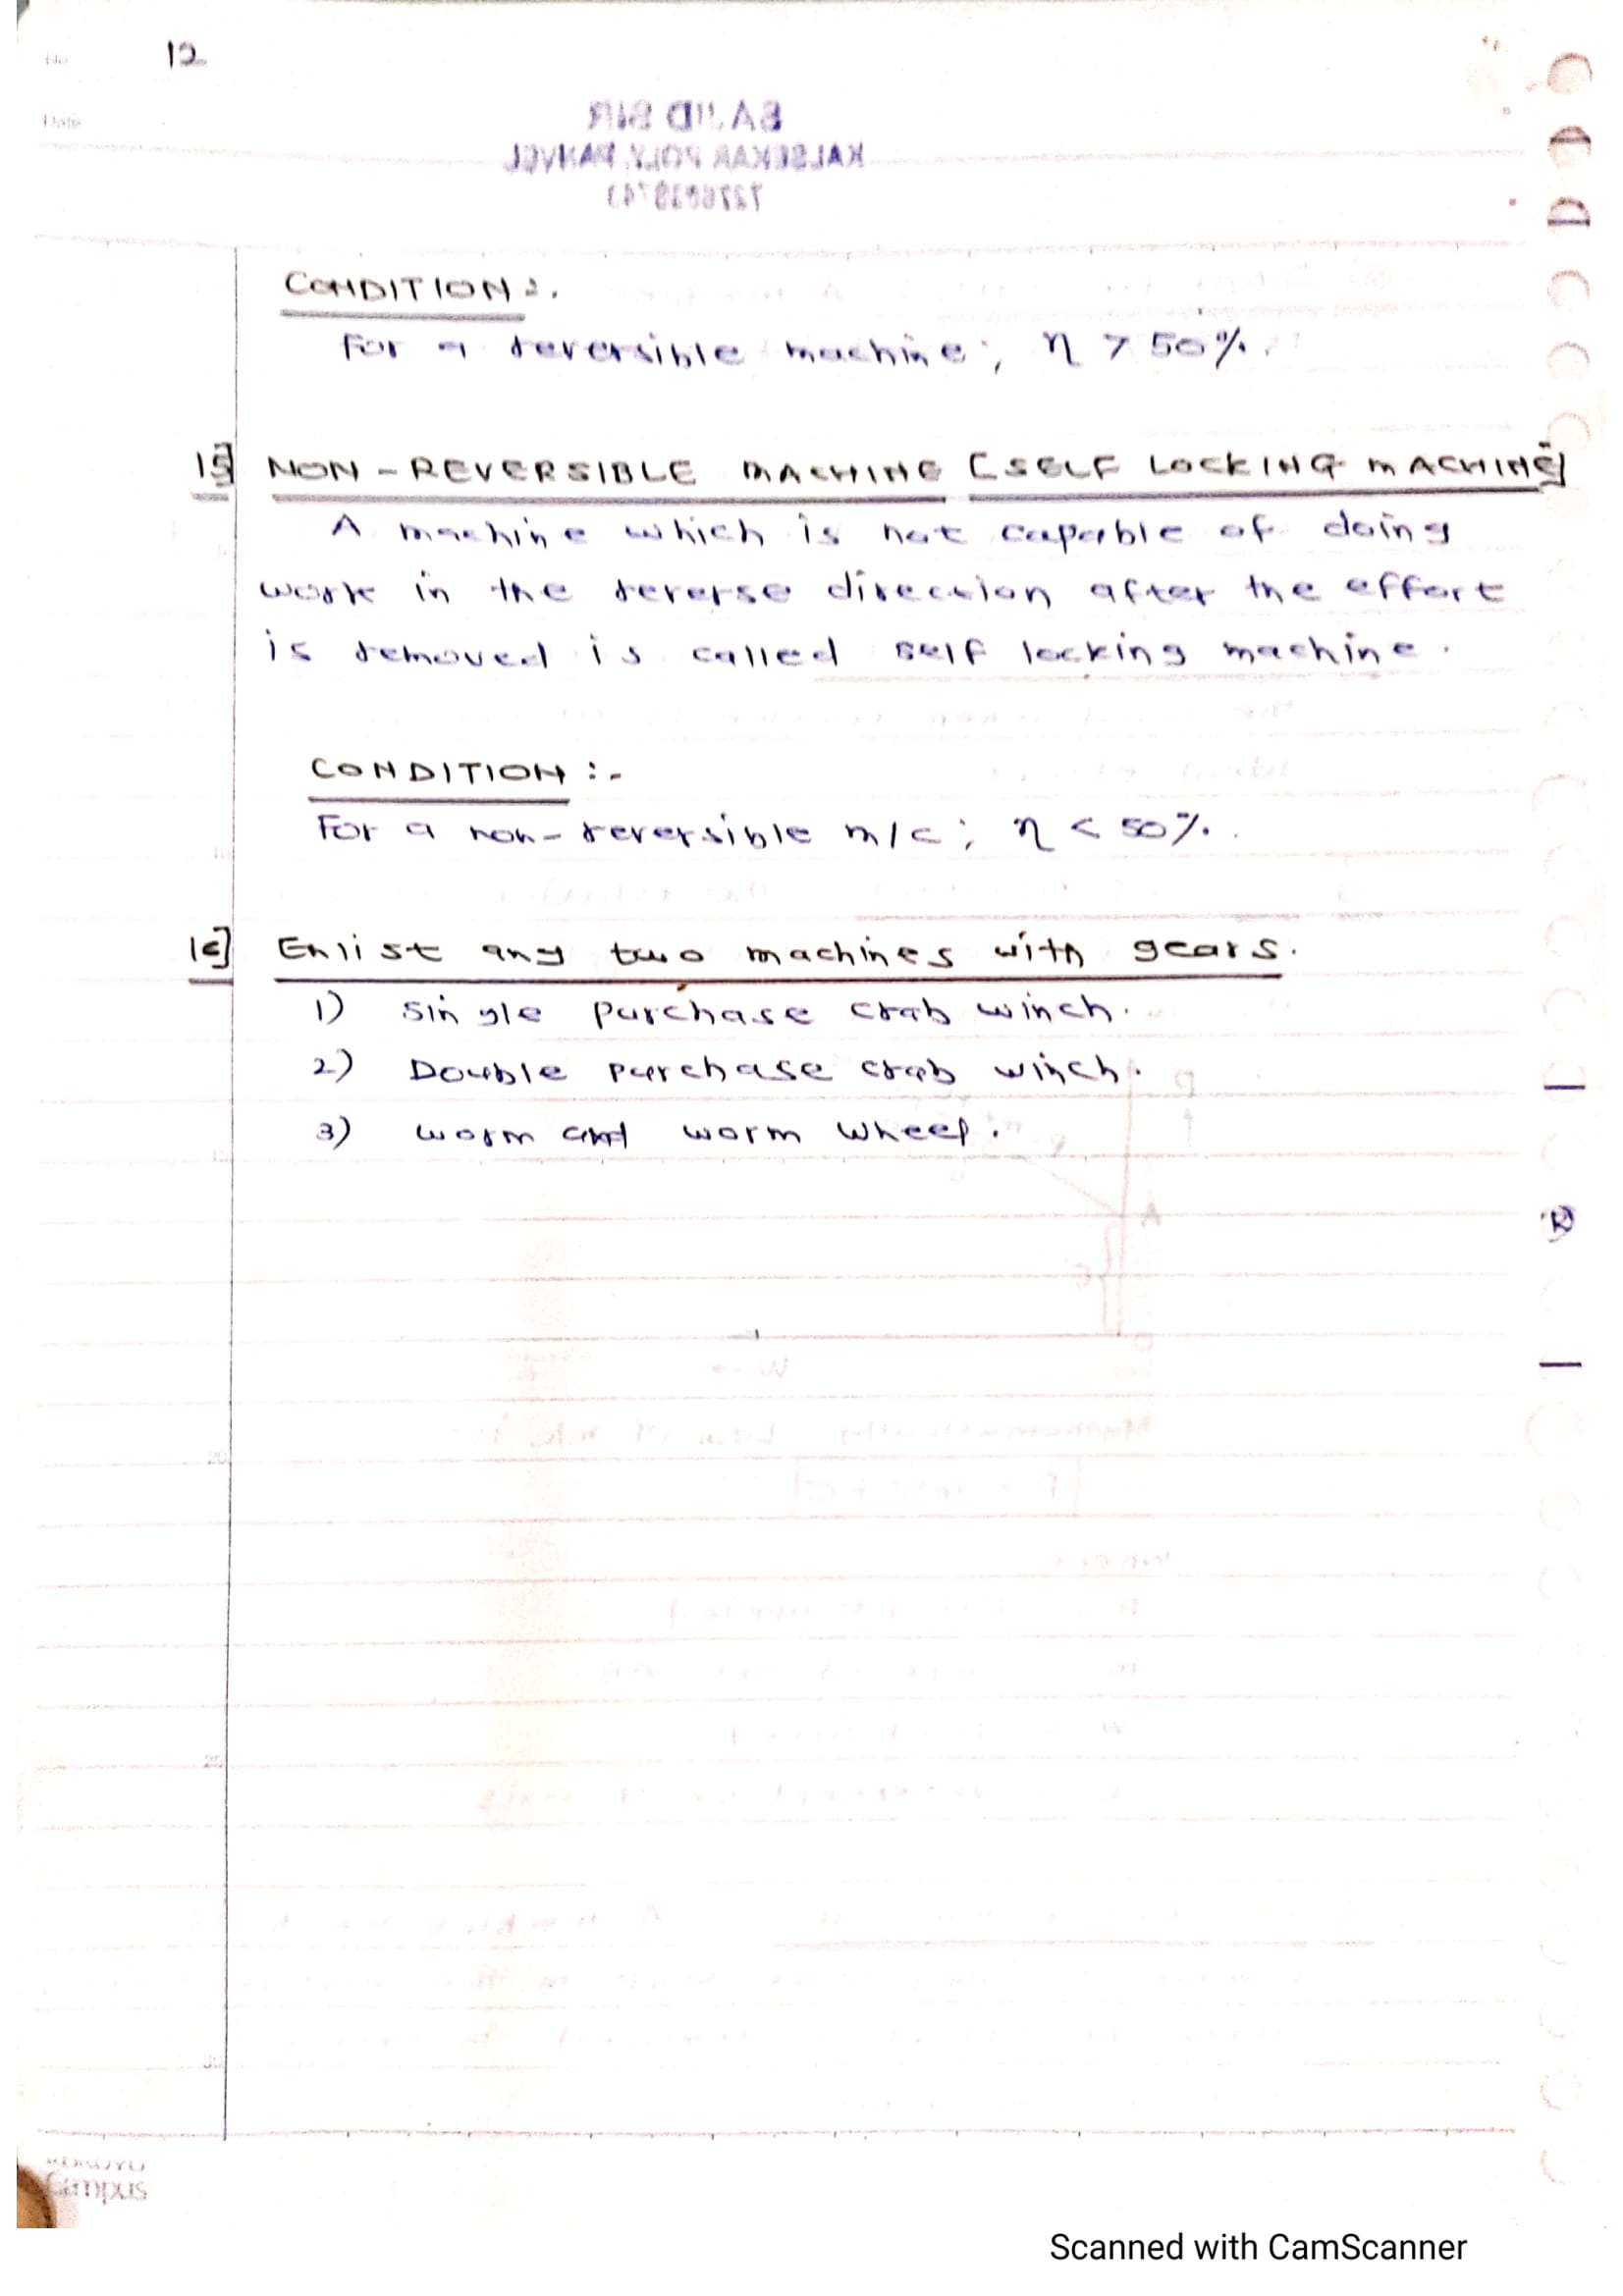 No
12
Date
SAJID SIR
KALSEKAR POLY PANVEL
CONDITION :.
For a reversible machine; η > 50%.
15] NON-REVERSIBLE MACHINE [SELF LOCKING MACHINE]
A machine which is not capable of doing
work in the reverse direction after the effort
is removed is called self locking machine.
CONDITION :-
For a non-reversible m/c; η < 50%.
16] Enlist any two machines with gears.
1) Single purchase crab winch.
2) Double purchase crab winch.
3) worm and worm wheel.
Campus
Scanned with CamScanner